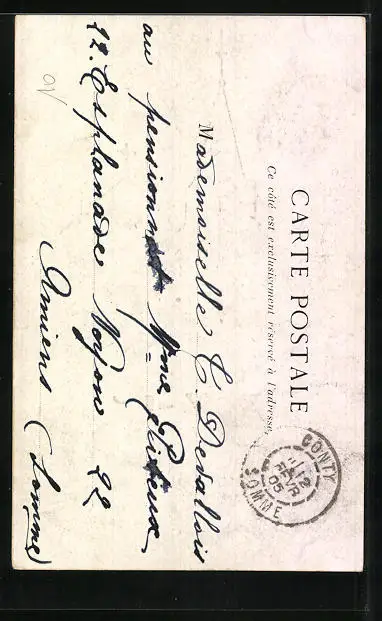 CARTE POSTALE
Ce côté est exclusivement réservé à l'adresse.
CONTY
12
FEVR
05
SOMME
Mademoiselle C. Devallois
au pensionnat Mme
22. Esplanade Noyon 22
Amiens (Somme)